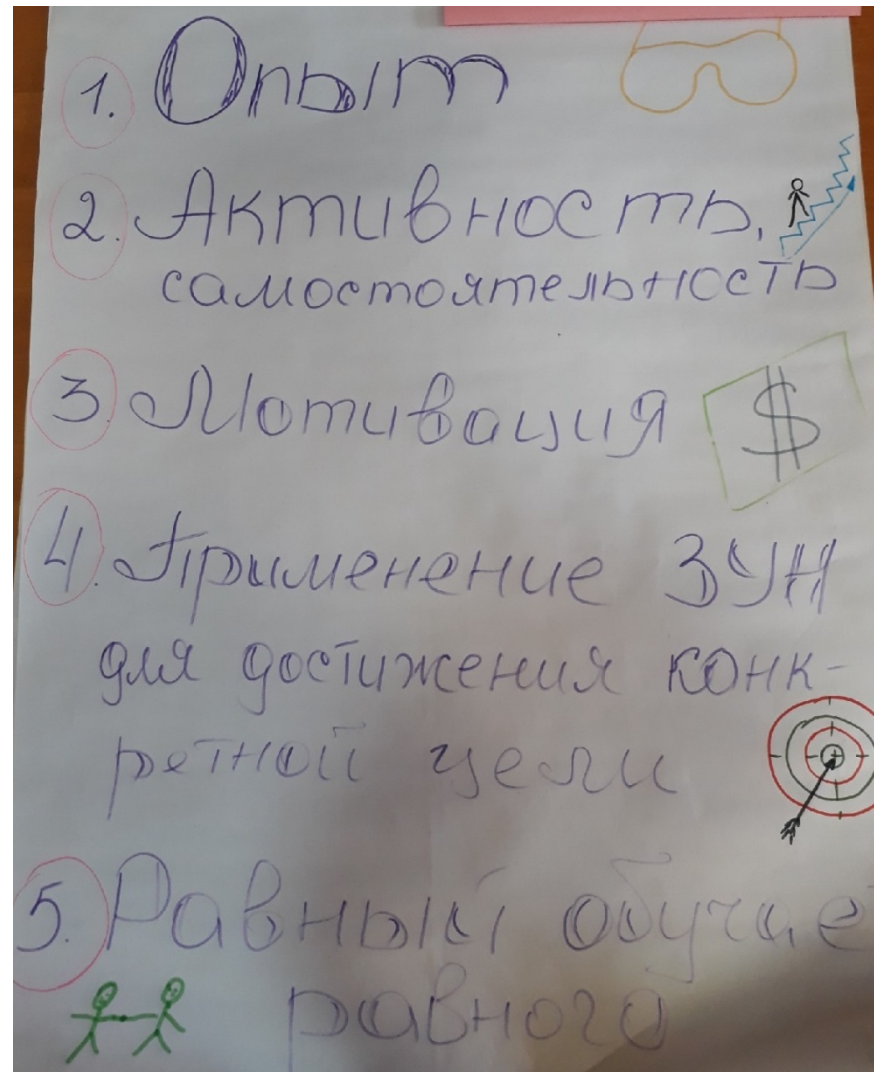 1. Опыт
2. Активность,
самостоятельность
$
3. Мотивация
4. Применение ЗУН
для достижения конк-
ретной цели
5. Равный обучае
равного